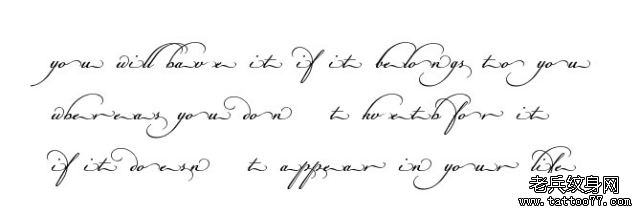 you will have it if it belongs to you
whereas you don t kvetch for it
if it doesn t appear in your life
老兵纹身网
www.tattoo77.com